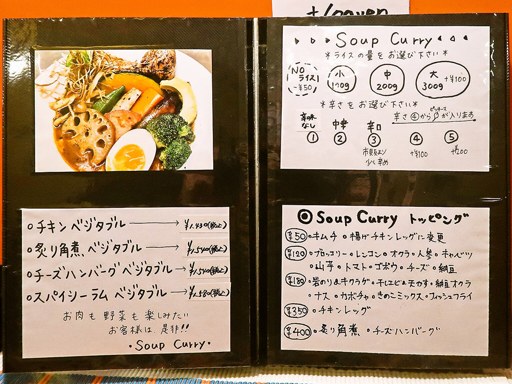 oチキンベジタブル → ¥1.430(税込)
o炙り角煮、ベジタブル → ¥1.540(税込)
oチーズハンバーグベジタブル → ¥1.540(税込)
oスパイシーラム ベジタブル → ¥1.580(税込)
お肉も野菜も楽しみたい
お客様は是非!!
・Soup Curry・
Soup Curry
*ライスの量をお選び下さい*
Noライス! -¥50
小 170g
中 200g
大 300g +¥100
*辛さをお選び下さい*
辛さ④から が入ります
辛味なし ①
中辛 ②
辛口 ③
④ +¥100
⑤ +¥200
◎Soup Curry トッピング
¥50 ・キムチ ・揚げチキンレッグに変更
¥120 ・ブロッコリー・レンコン・オクラ・人参・キャベツ
・山芋・トマト・ゴボウ・チーズ・納豆
¥180 ・岩のり&キクラゲ ・納豆オクラ
・ナス・カボチャ・きのこミックス
¥350 ・チキンレッグ
¥400 ・炙り角煮 ・チーズハンバーグ